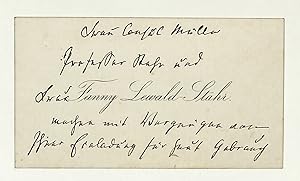 Frau Consul Müller
Professor Stahr und
Frau Fanny Lewald-Stahr.
machen mit Vergnügen von
Ihrer Einladung für heut Gebrauch